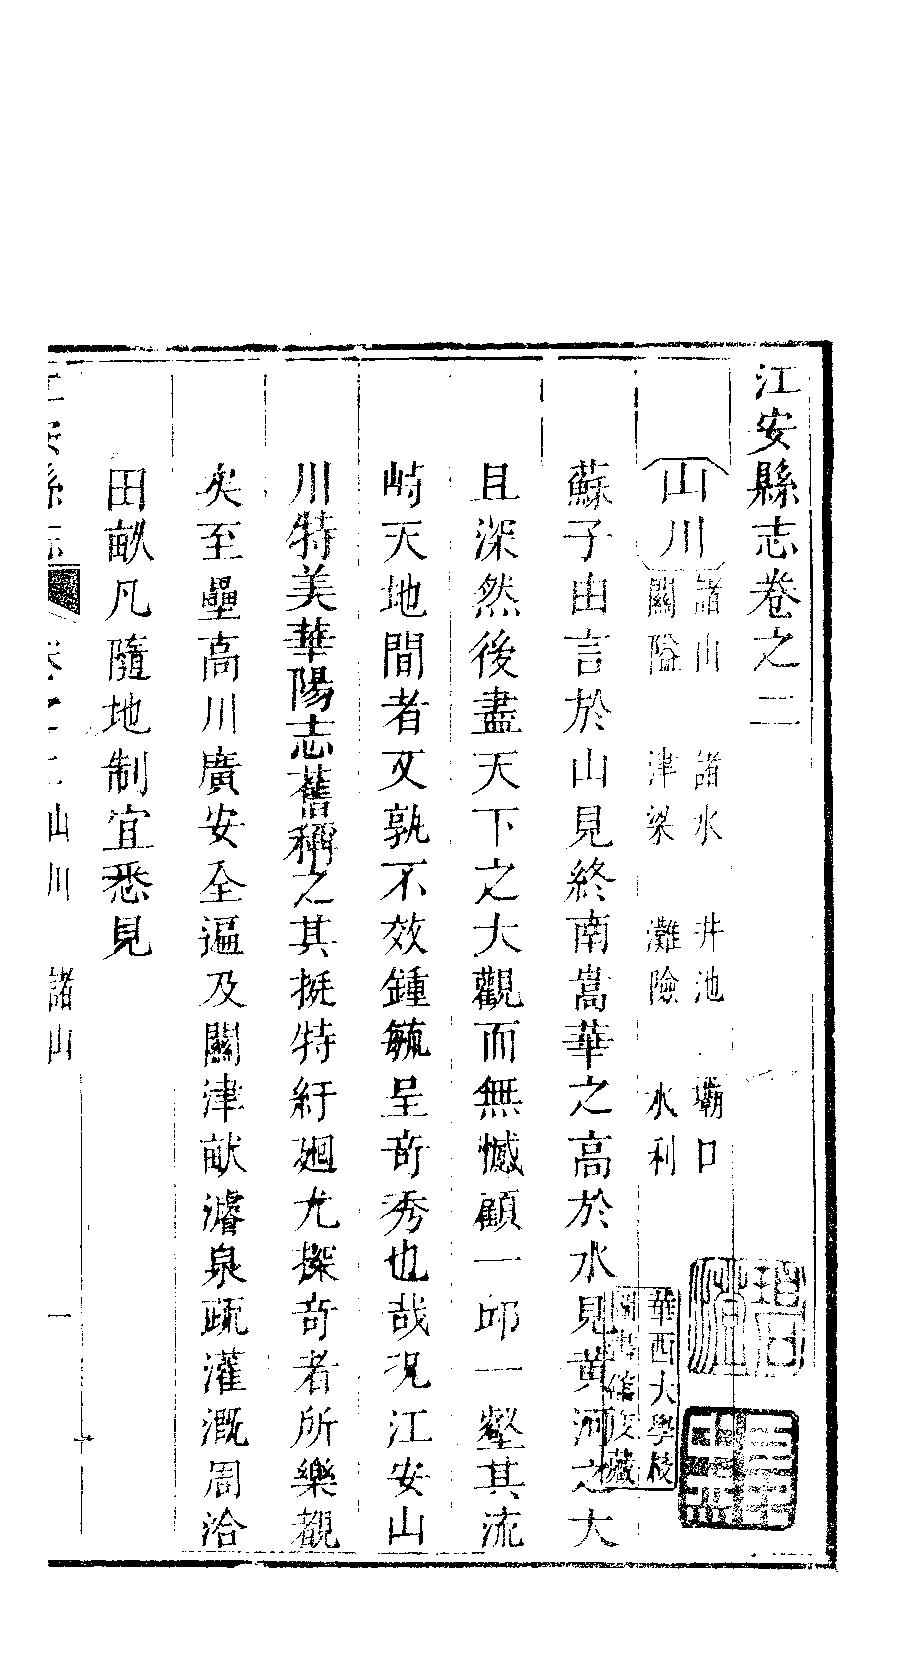 江安縣志卷之二
山川 諸山 諸水 井池 壩口
關隘 津梁 灘險 水利
蘇子由言於山見終南嵩華之高於水見黃河之大
且深然後盡天下之大觀而無憾顧一邱一壑其流
峙天地間者又孰不效鍾毓呈奇秀也哉況江安山
川特美華陽志舊稱之其挺特紆廻尤探奇者所樂觀
矣至壘高川廣安全遍及關津畎濬泉疏灌溉周洽
田畝凡隨地制宜悉見
江安縣志 卷之二 山川 諸山 一
華西大學校
圖書館收藏